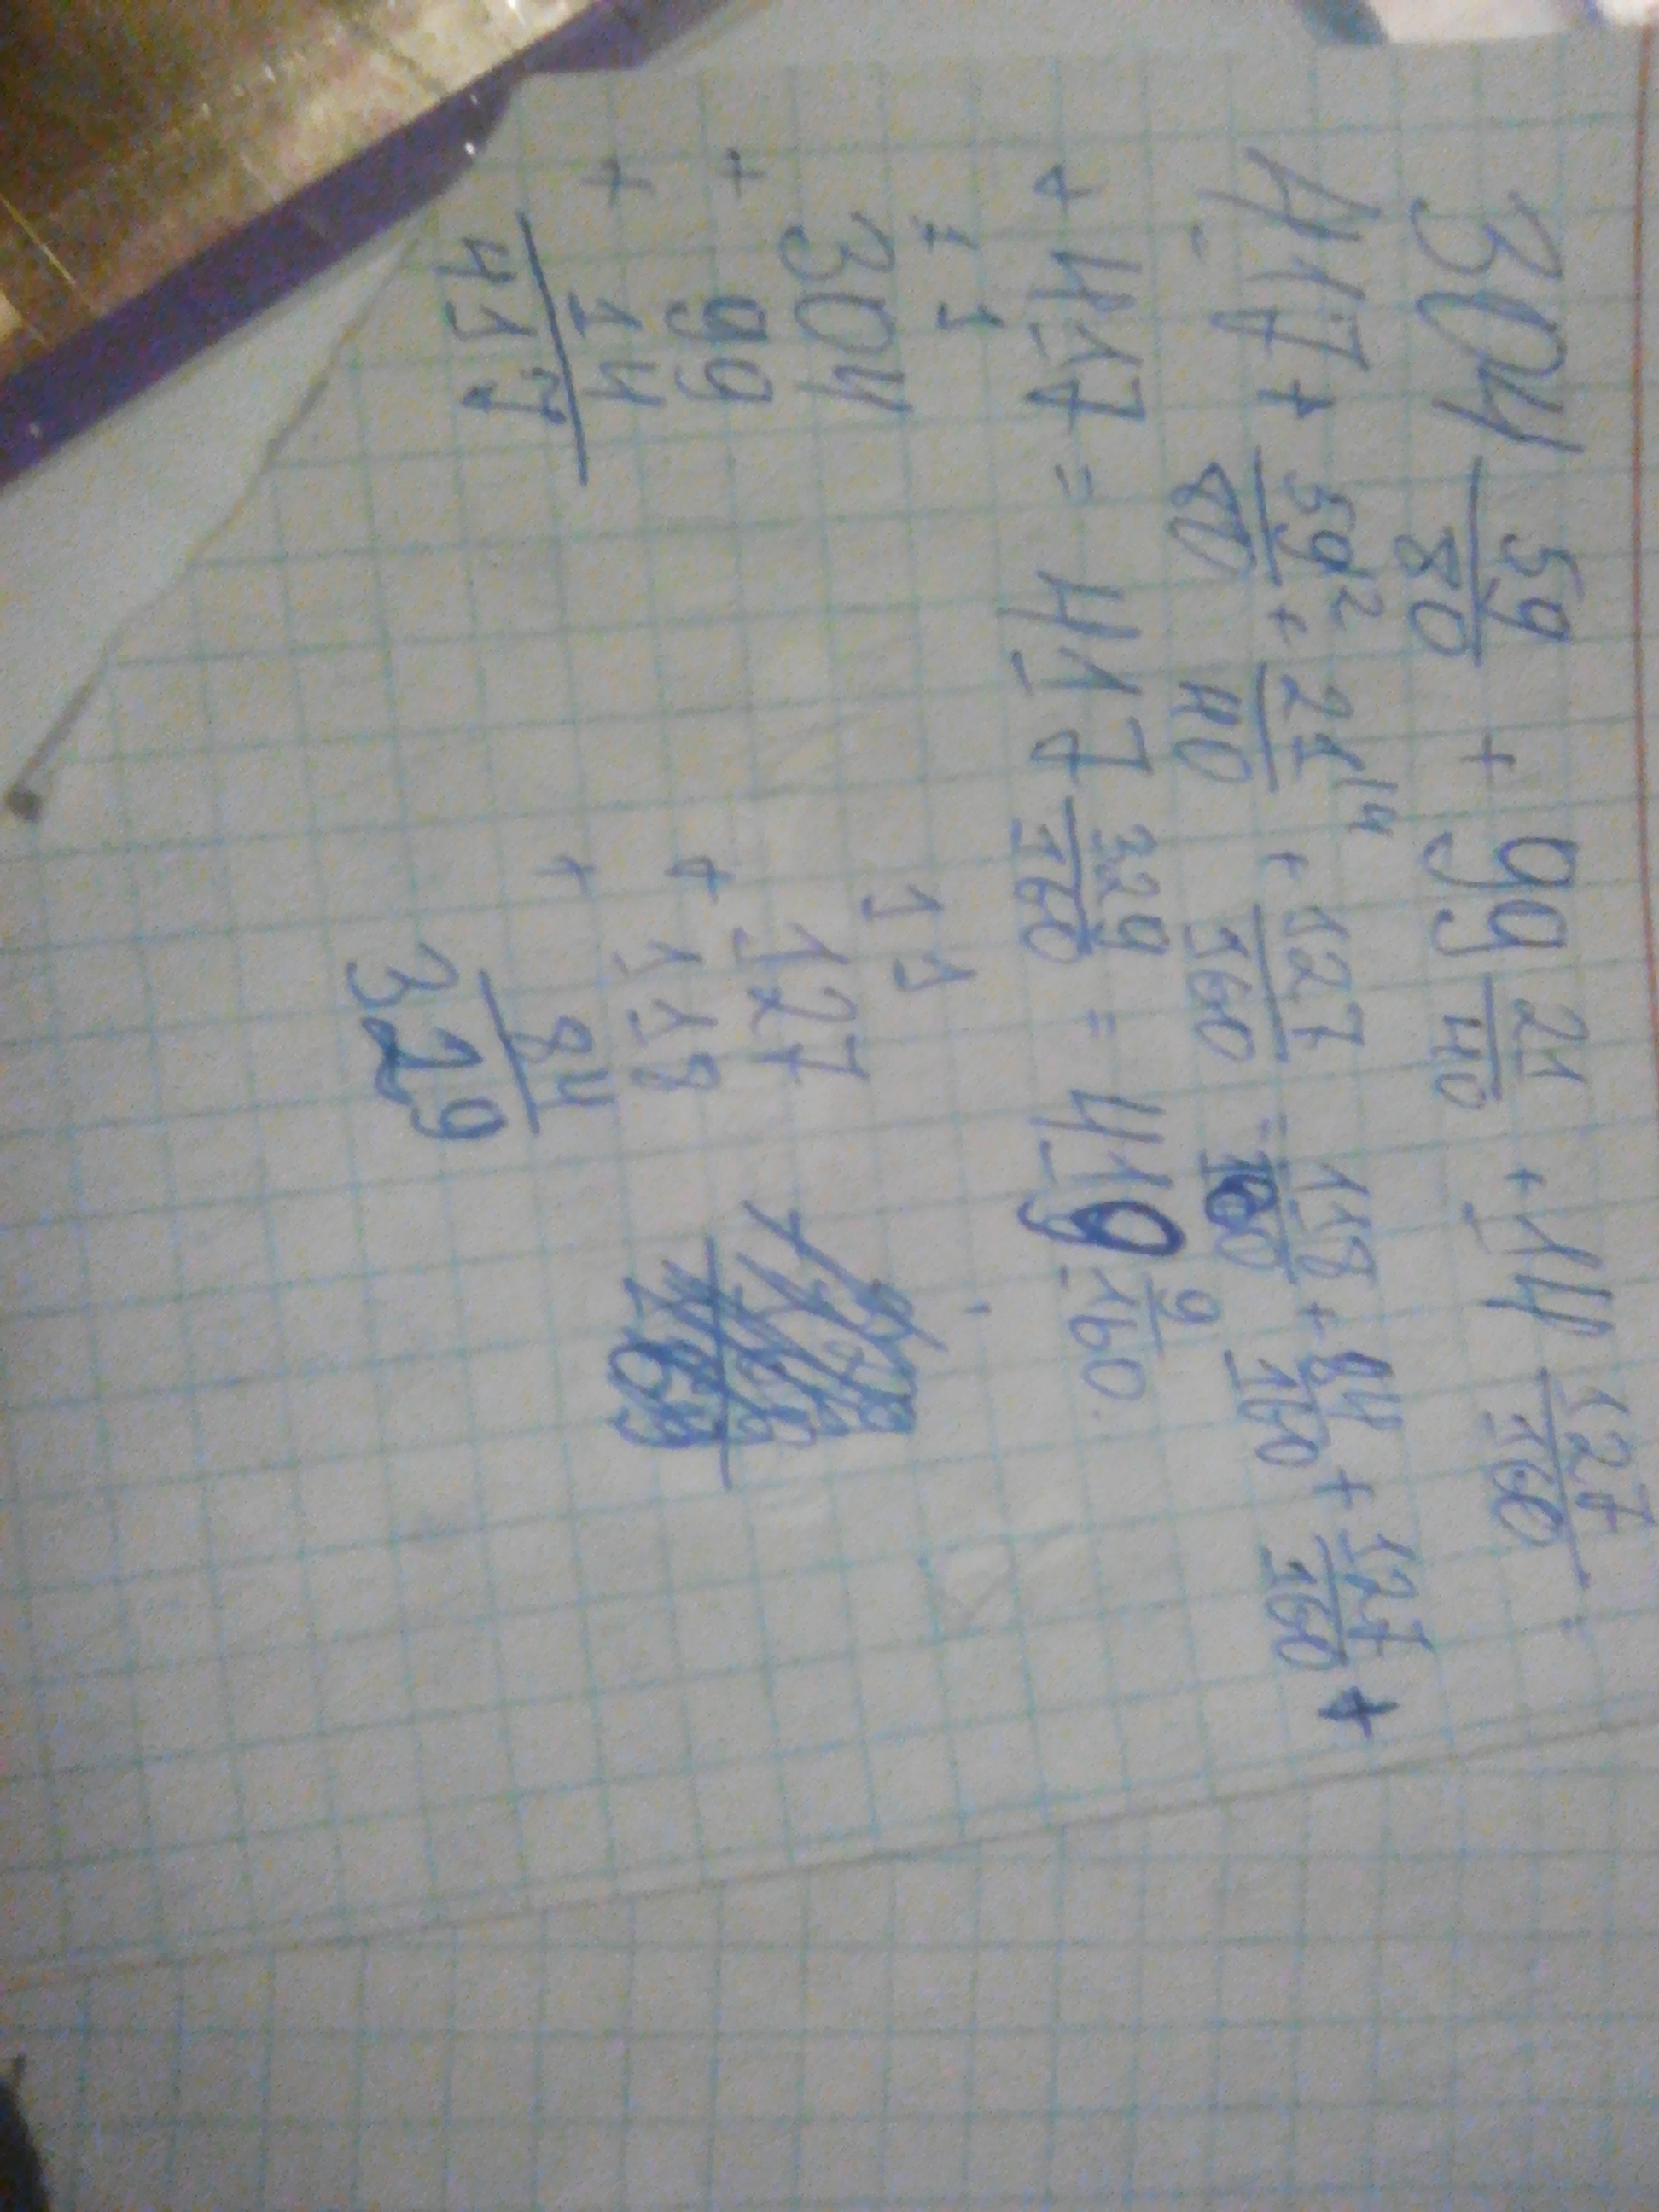 304 59/80 + 99 21/40 + 14 127/160 =
417 + 59/80 ² + 21/40 ⁴ + 127/160 = 118/160 + 84/160 + 127/160 +
+ 417 = 417 329/160 = 419 9/160.
1 1
304
+ 99
+ 14
417
1 1
127
+ 118
+ 84
329